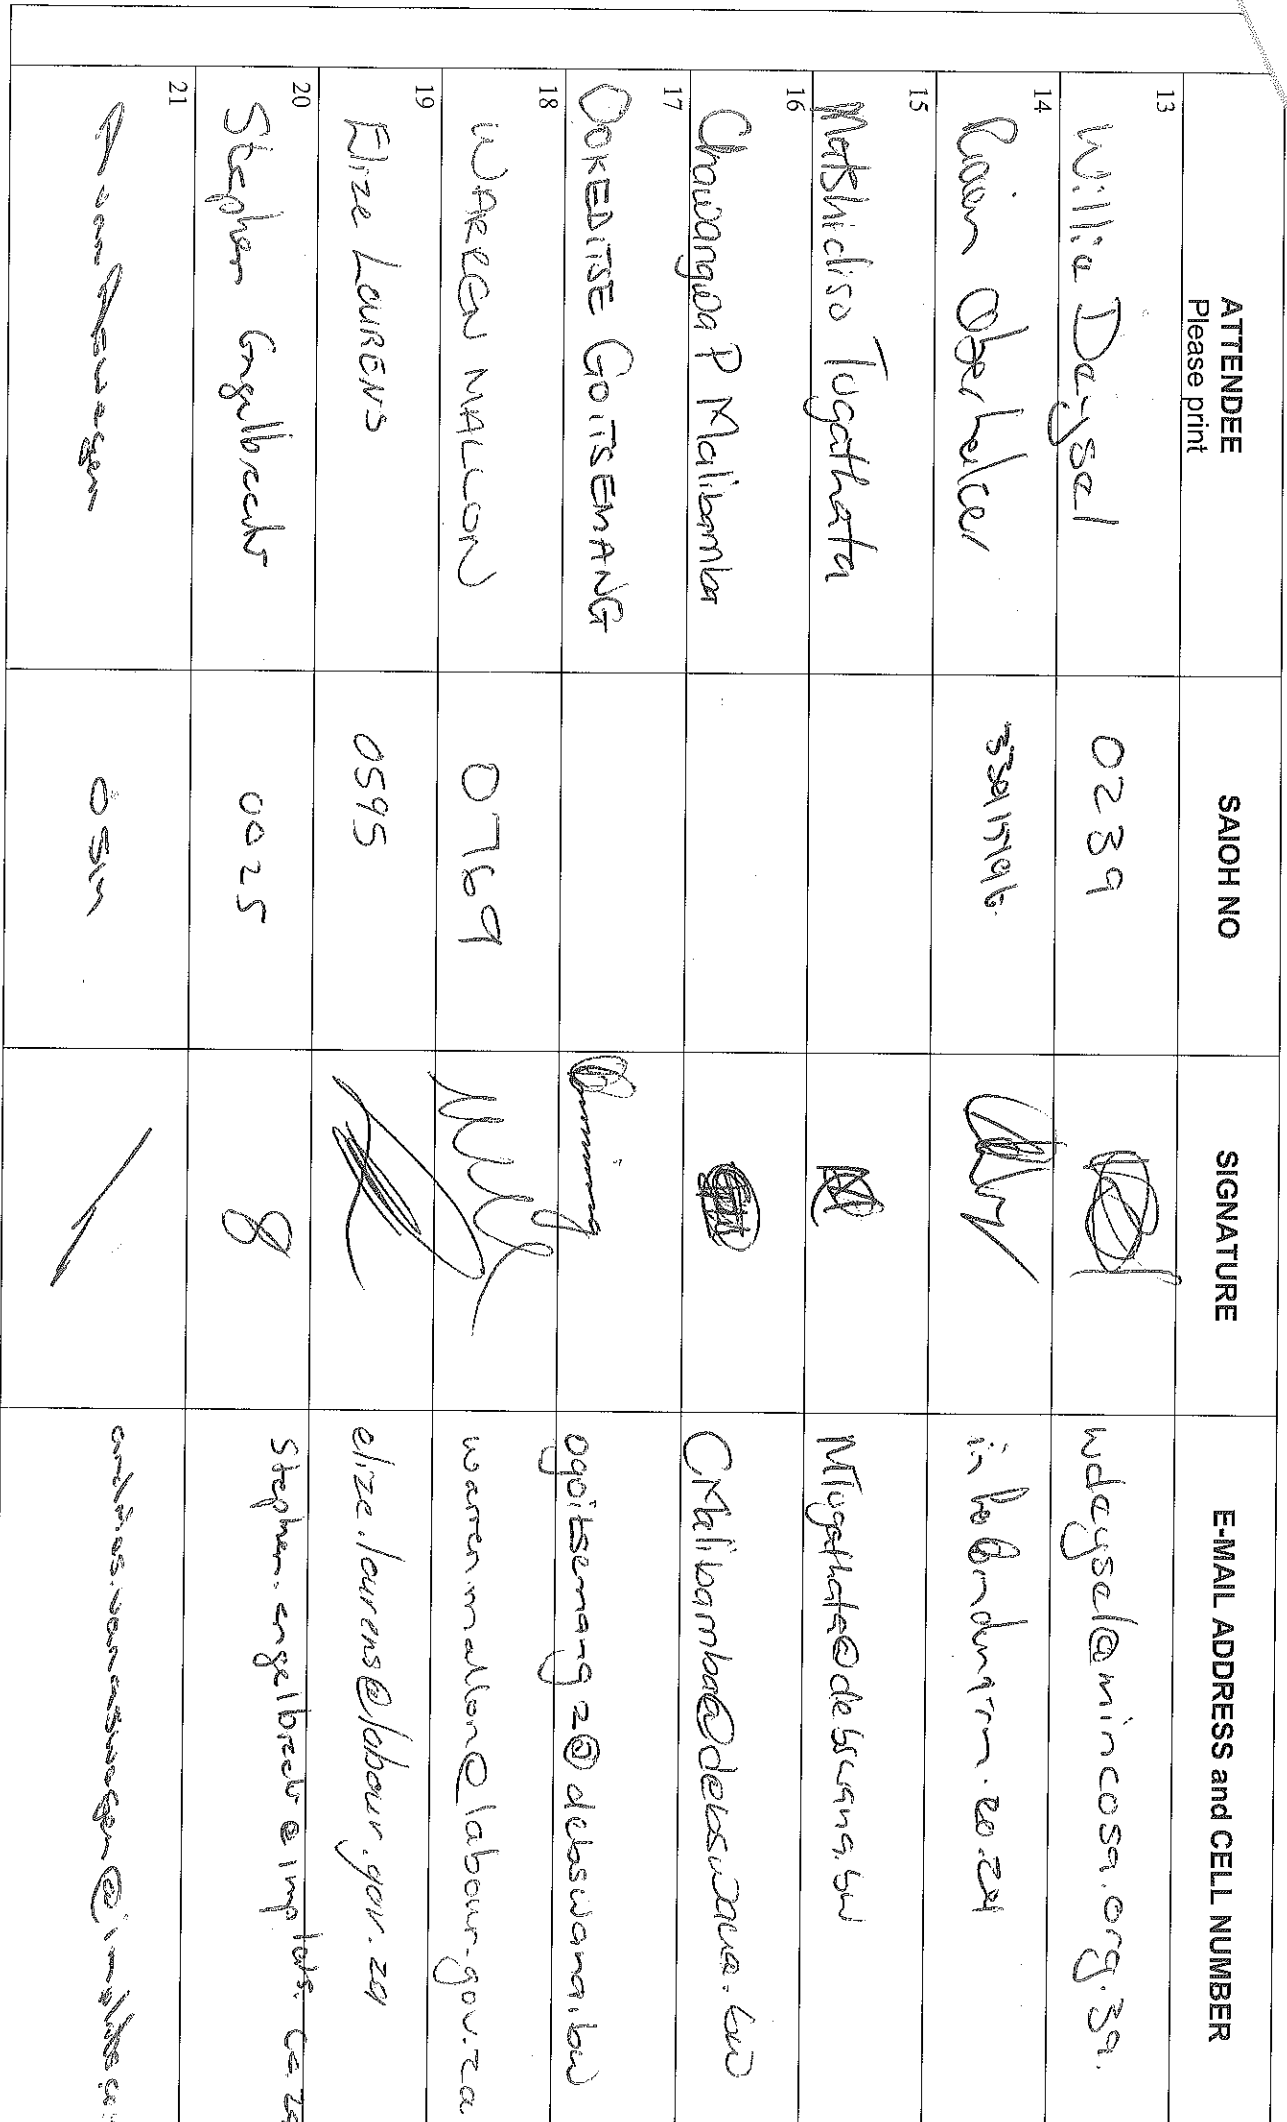 ATTENDEE SAIOH NO SIGNATURE E-MAIL ADDRESS and CELL NUMBER
Please print
13 Willie Deysel 0239 wdeysel@mincosa.org.za.
14 Rian
15 Motshidiso Tugathata MTugathata@debswana.bw
16 Chawangwa P Malibamba CMalibamba@debswana.bw
17 OOKEDITSE GOITSEMANG ogoitsemang2@debswana.bw
18 WARREN MALLON 0769 warren.mallon@labour.gov.za
19 Elize LOURENS 0595 elize.lourens@labour.gov.za
20 Stephen Engelbrecht 0025 stephen.engelbrecht@implats.co.za
21